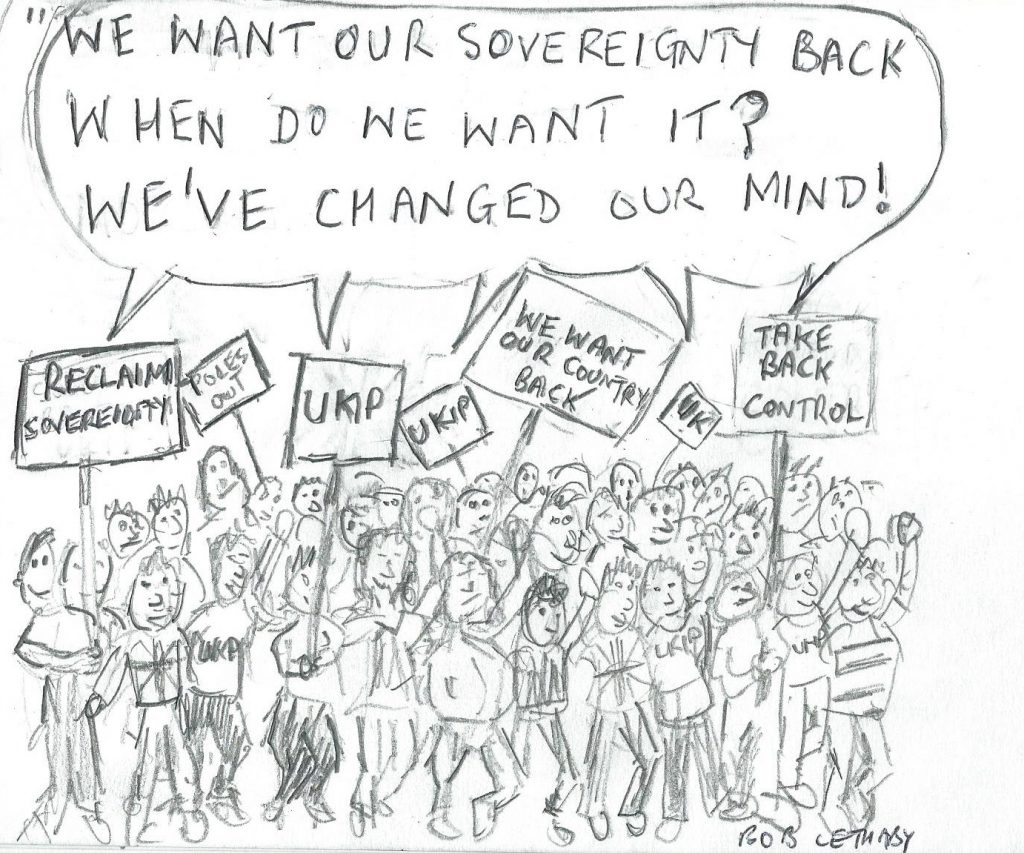 "WE WANT OUR SOVEREIGNTY BACK
WHEN DO WE WANT IT?
WE'VE CHANGED OUR MIND!
RECLAIM
SOVEREIGNTY
POLES
OUT
UKIP
UKIP
WE WANT
OUR COUNTRY
BACK
UK
TAKE
BACK
CONTROL
UKIP
UKIP
UKIP
BOB LETHABY